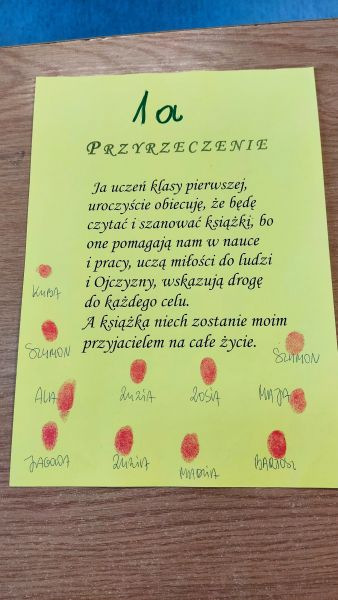 1a
PRZYRZECZENIE
Ja uczeń klasy pierwszej,
uroczyście obiecuję, że będę
czytać i szanować książki, bo
one pomagają nam w nauce
i pracy, uczą miłości do ludzi
i Ojczyzny, wskazują drogę
do każdego celu.
A książka niech zostanie moim
przyjacielem na całe życie.
KUBA
SZYMON
SZYMON
ALA
ZUZIA
ZOSIA
MAJA
JAGODA
ZUZIA
MARIA
BARTOSZ